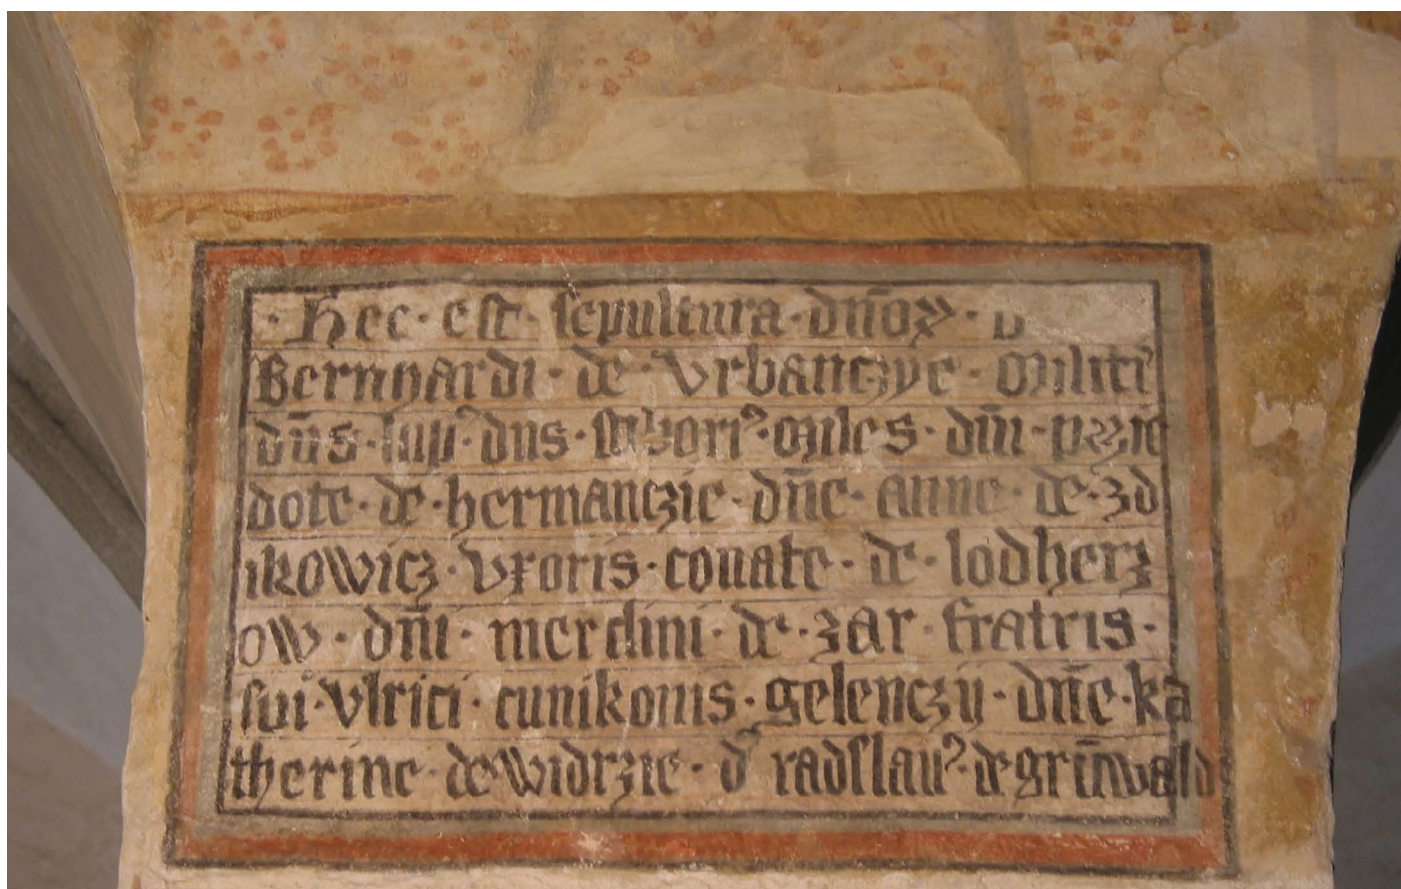 · Hec · est · sepultura · dn̄oꝝ · d
Bernhardi · de · vrbanczye · militis
dn̄s · lupꝰ · dns · stiborꝰ · miles · dn̄i · przie
dote · de · hermanczie · dn̄e · anne · de · zd
ikowicz · vxoris · conate · de · lodherz
ow · dn̄i · merclini · de · zar · fratris ·
sui · vlrici · cunikonis · gelenczy · dn̄e · ka
therine · de widrzie · d radslauꝰ · de grūwald